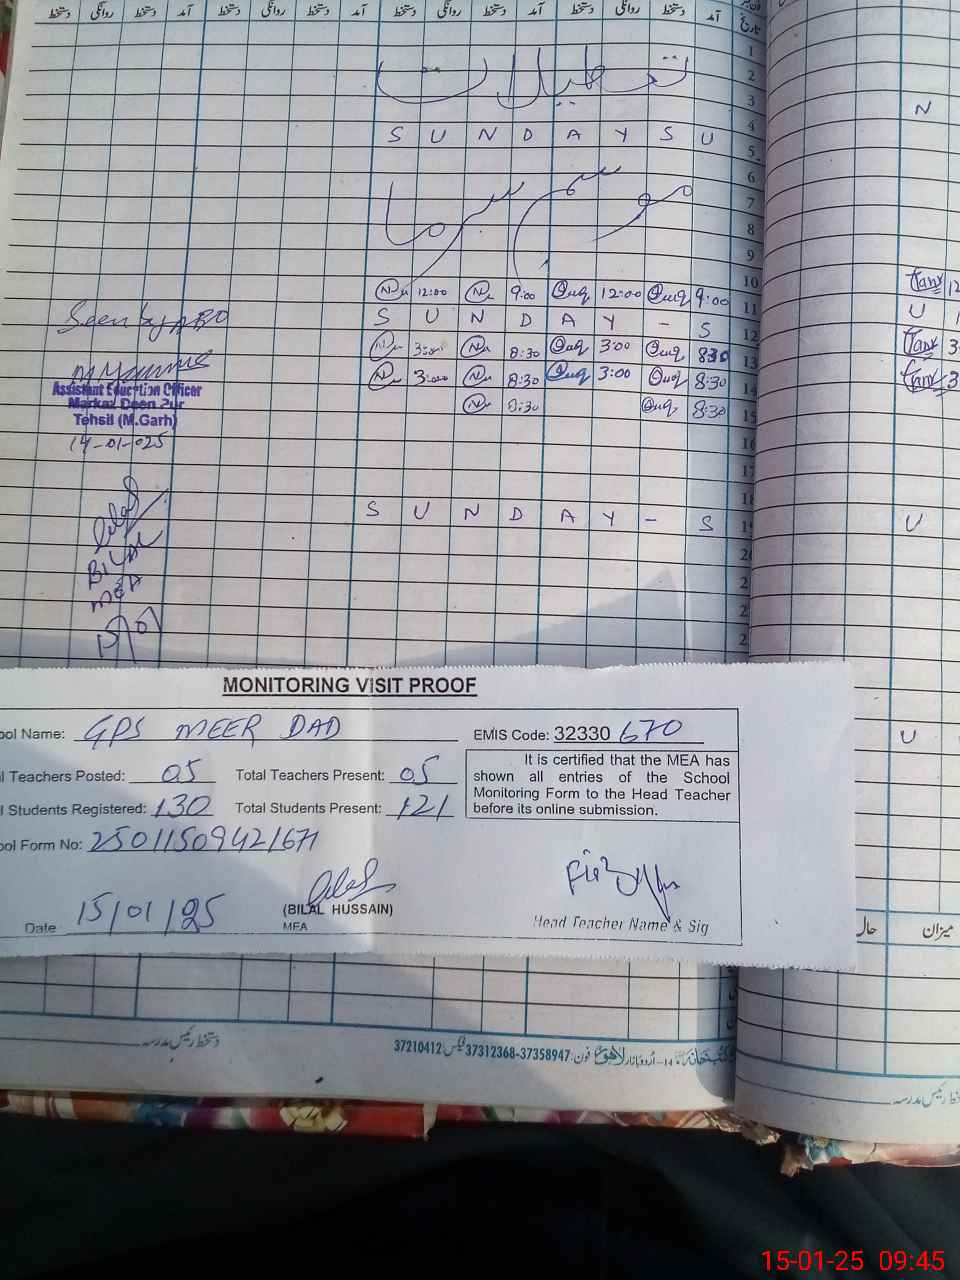 دستخط روانگی دستخط آمد دستخط روانگی دستخط آمد دستخط روانگی دستخط آمد دستخط روانگی دستخط آمد
تاریخ
1
2
تعطیلات
3
N
4
S U N D A Y S U
5
6
7
موسم سرما
8
9
10
N 12:00 N 9:00 12:00 9:00
11
Seen by AEO
S U N D A Y - S
U
12
3:00 N 8:30 3:00 8:30
13
3:00 N 8:30 3:00 8:30
14
8:30 8:30
15
Assistant Education Officer
Markaz Deen Pur
Tehsil (M.Garh)
14-01-025
16
17
18
S U N D A Y - S
U
BILAL
MEA
MONITORING VISIT PROOF
ool Name: GPS MEER DAD EMIS Code: 32330 670
l Teachers Posted: 05 Total Teachers Present: 05
l Students Registered: 130 Total Students Present: 121
It is certified that the MEA has
shown all entries of the School
Monitoring Form to the Head Teacher
before its online submission.
ool Form No: 25011509421671
U
Date 15/01/25
(BILAL HUSSAIN)
MEA
Head Teacher Name & Sig
حال میزان
دستخط رئیس مدرسہ
14-اردو بازار لاہور فون: 37358947-37312368 فیکس 37210412
15-01-25 09:45